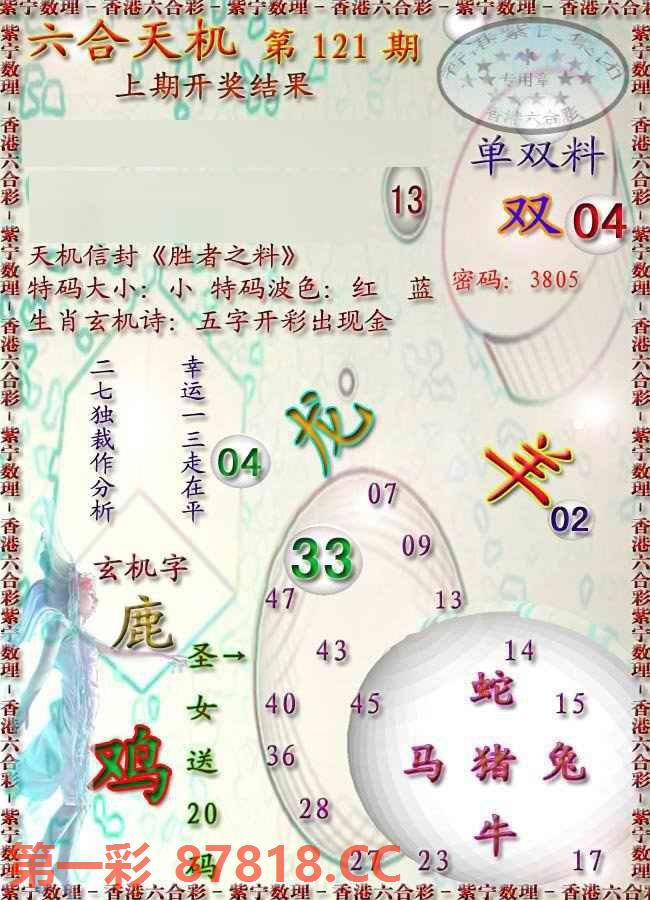 紫宁数理－香港六合彩－紫宁数理－香港六合彩－紫宁数理－香港六合彩
六合天机 第 121 期
上期开奖结果
香港紫宁集团
专用章
香港六合彩
单双料
双 04
13
天机信封《胜者之料》
特码大小：小 特码波色：红 蓝
密码：3805
生肖玄机诗：五字开彩出现金
二七独裁作分析
幸运一三走在平
04
龙
羊
02
07
33
09
47
13
玄机字
鹿
圣→
女
送
20
码
鸡
43
40
45
36
28
27
23
14
蛇
15
马 猪 兔
牛
17
第一彩 87818.CC
紫宁数理－香港六合彩－紫宁数理－香港六合彩－紫宁数理－香港六合彩